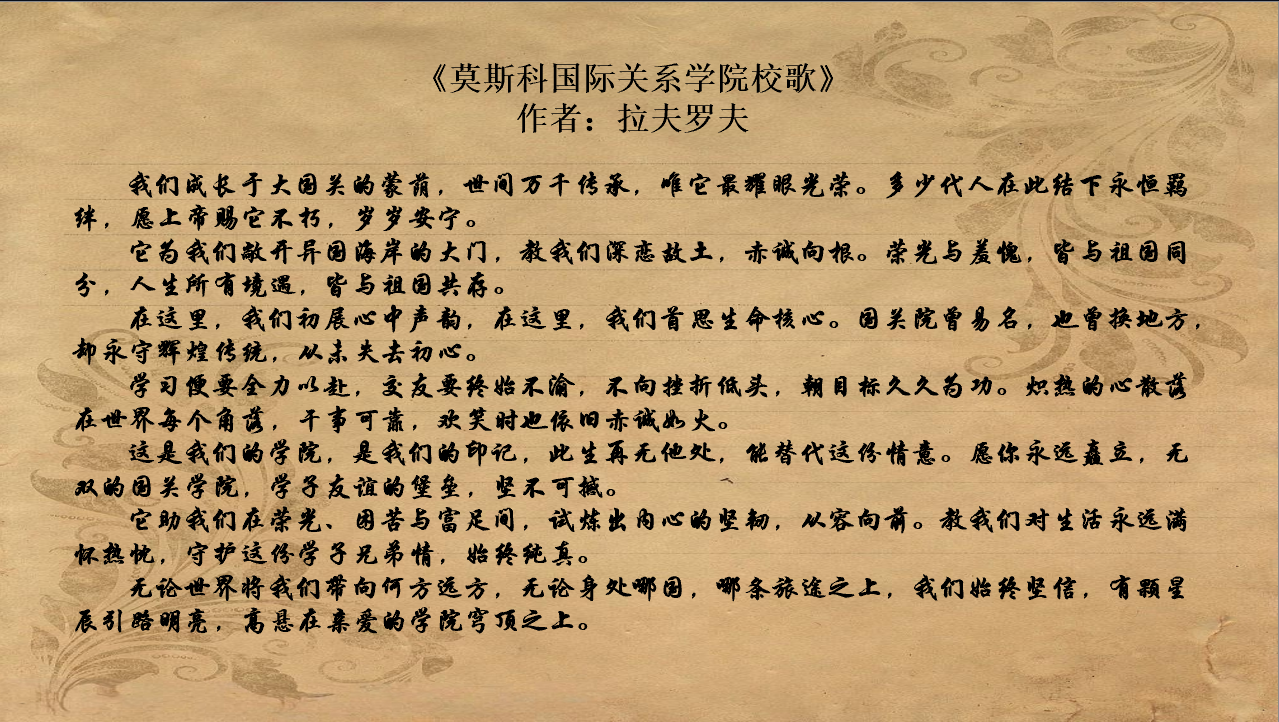 《莫斯科国际关系学院校歌》
作者：拉夫罗夫
我们成长于大国关的蒙荫，世间万千传承，唯它最耀眼光荣。多少代人在此结下永恒羁
绊，愿上帝赐它不朽，岁岁安宁。
它为我们敞开异国海岸的大门，教我们深恋故土，赤诚向根。荣光与羞愧，皆与祖国同
分，人生所有境遇，皆与祖国共存。
在这里，我们初展心中声韵，在这里，我们首思生命核心。国关院曾易名，也曾换地方，
却永守辉煌传统，从未失去初心。
学习便要全力以赴，交友要终始不渝，不向挫折低头，朝目标久久为功。炽热的心散落
在世界每个角落，干事可靠，欢笑时也依旧赤诚如火。
这是我们的学院，是我们的印记，此生再无他处，能替代这份情意。愿你永远矗立，无
双的国关学院，学子友谊的堡垒，坚不可撼。
它助我们在荣光、困苦与富足间，试炼出内心的坚韧，从容向前。教我们对生活永远满
怀热忱，守护这份学子兄弟情，始终纯真。
无论世界将我们带向何方远方，无论身处哪国，哪条旅途之上，我们始终坚信，有颗星
辰引路明亮，高悬在亲爱的学院穹顶之上。